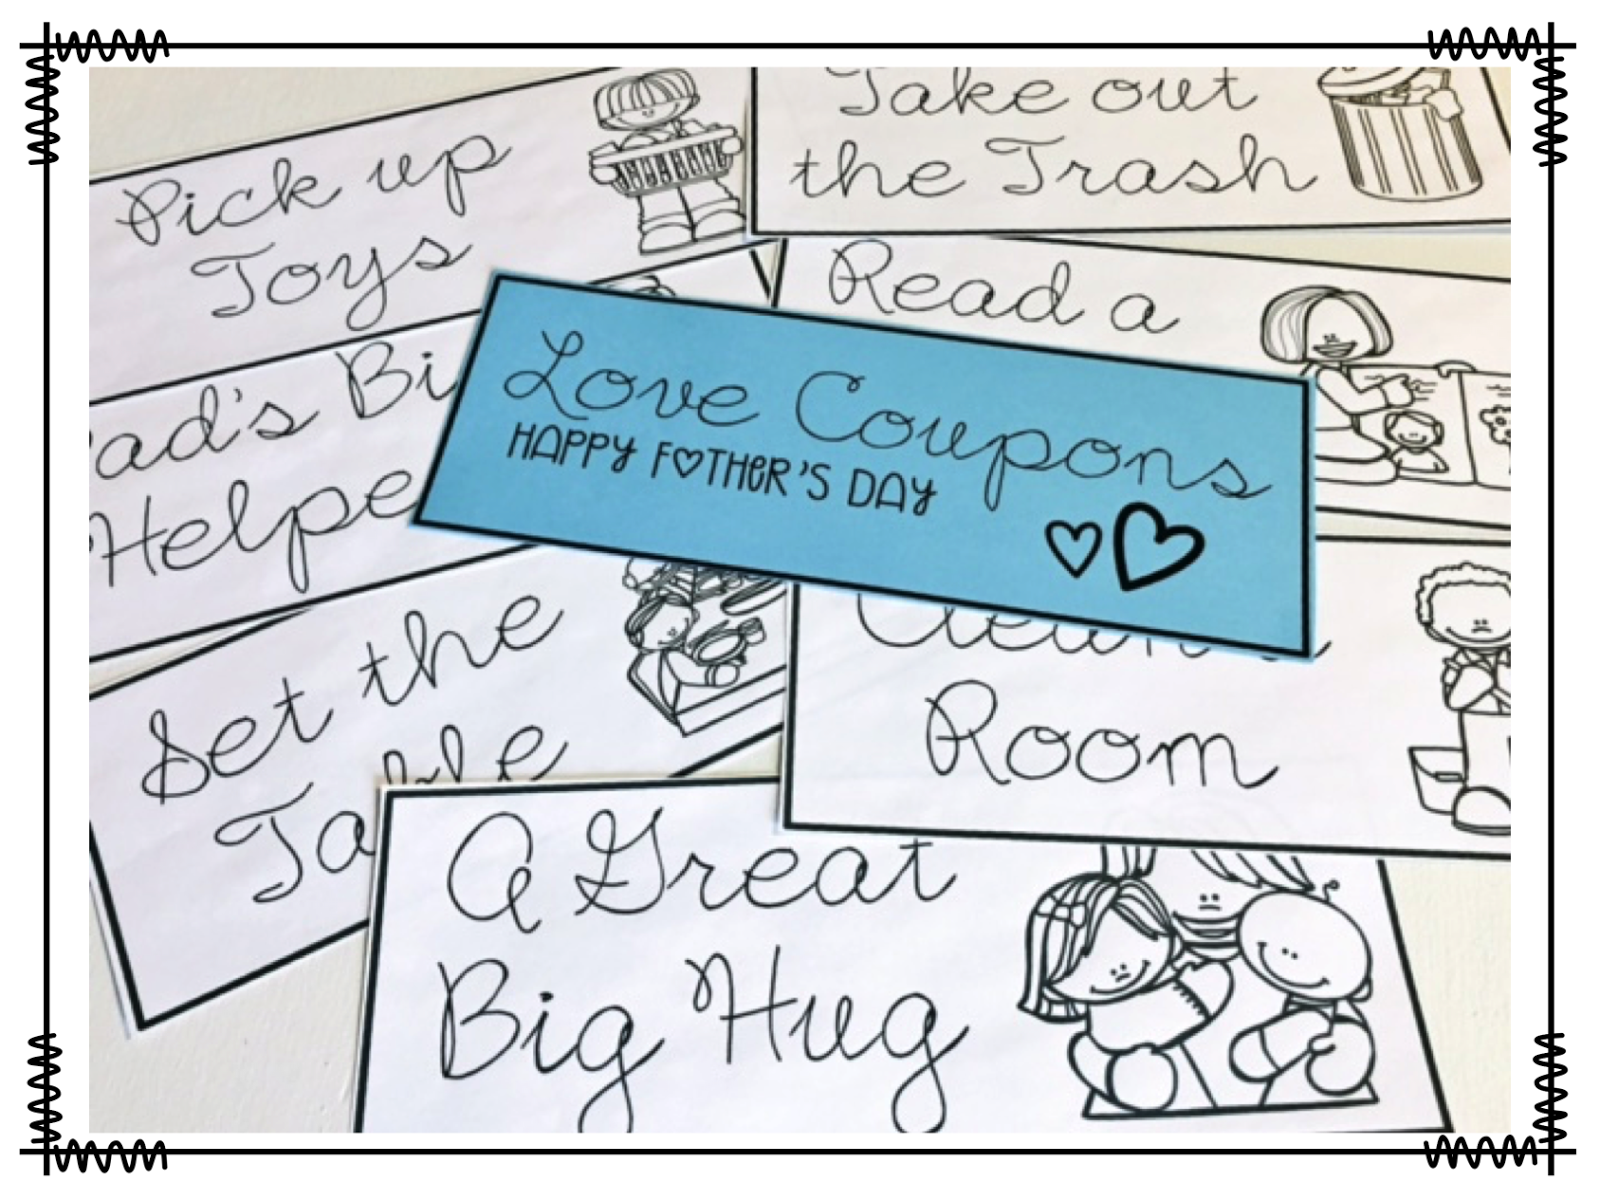 Pick up
Toys
Take out
the Trash
Read a
Love Coupons
HAPPY FOTHER'S DAY
Set the
Room
A Great
Big Hug